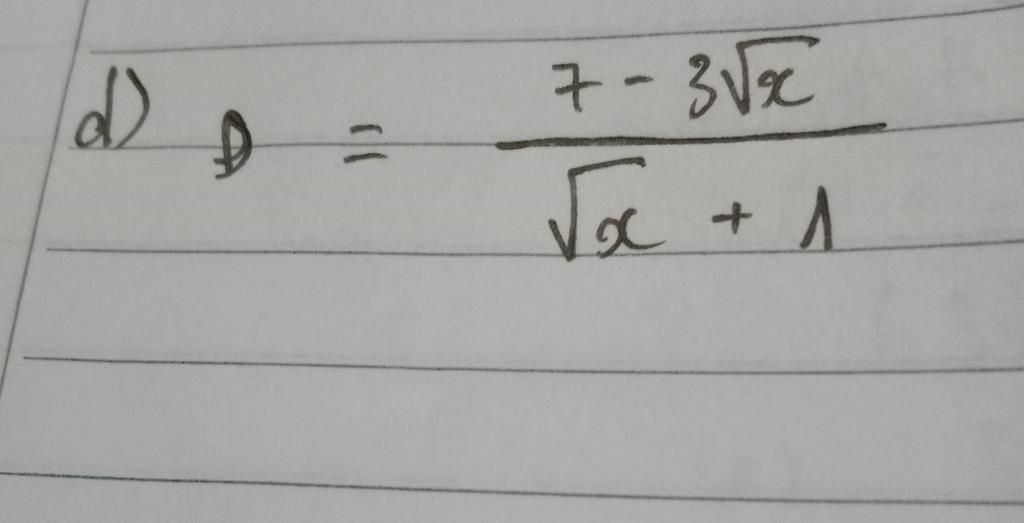 d) D = \frac{7 - 3\sqrt{x}}{\sqrt{x} + 1}